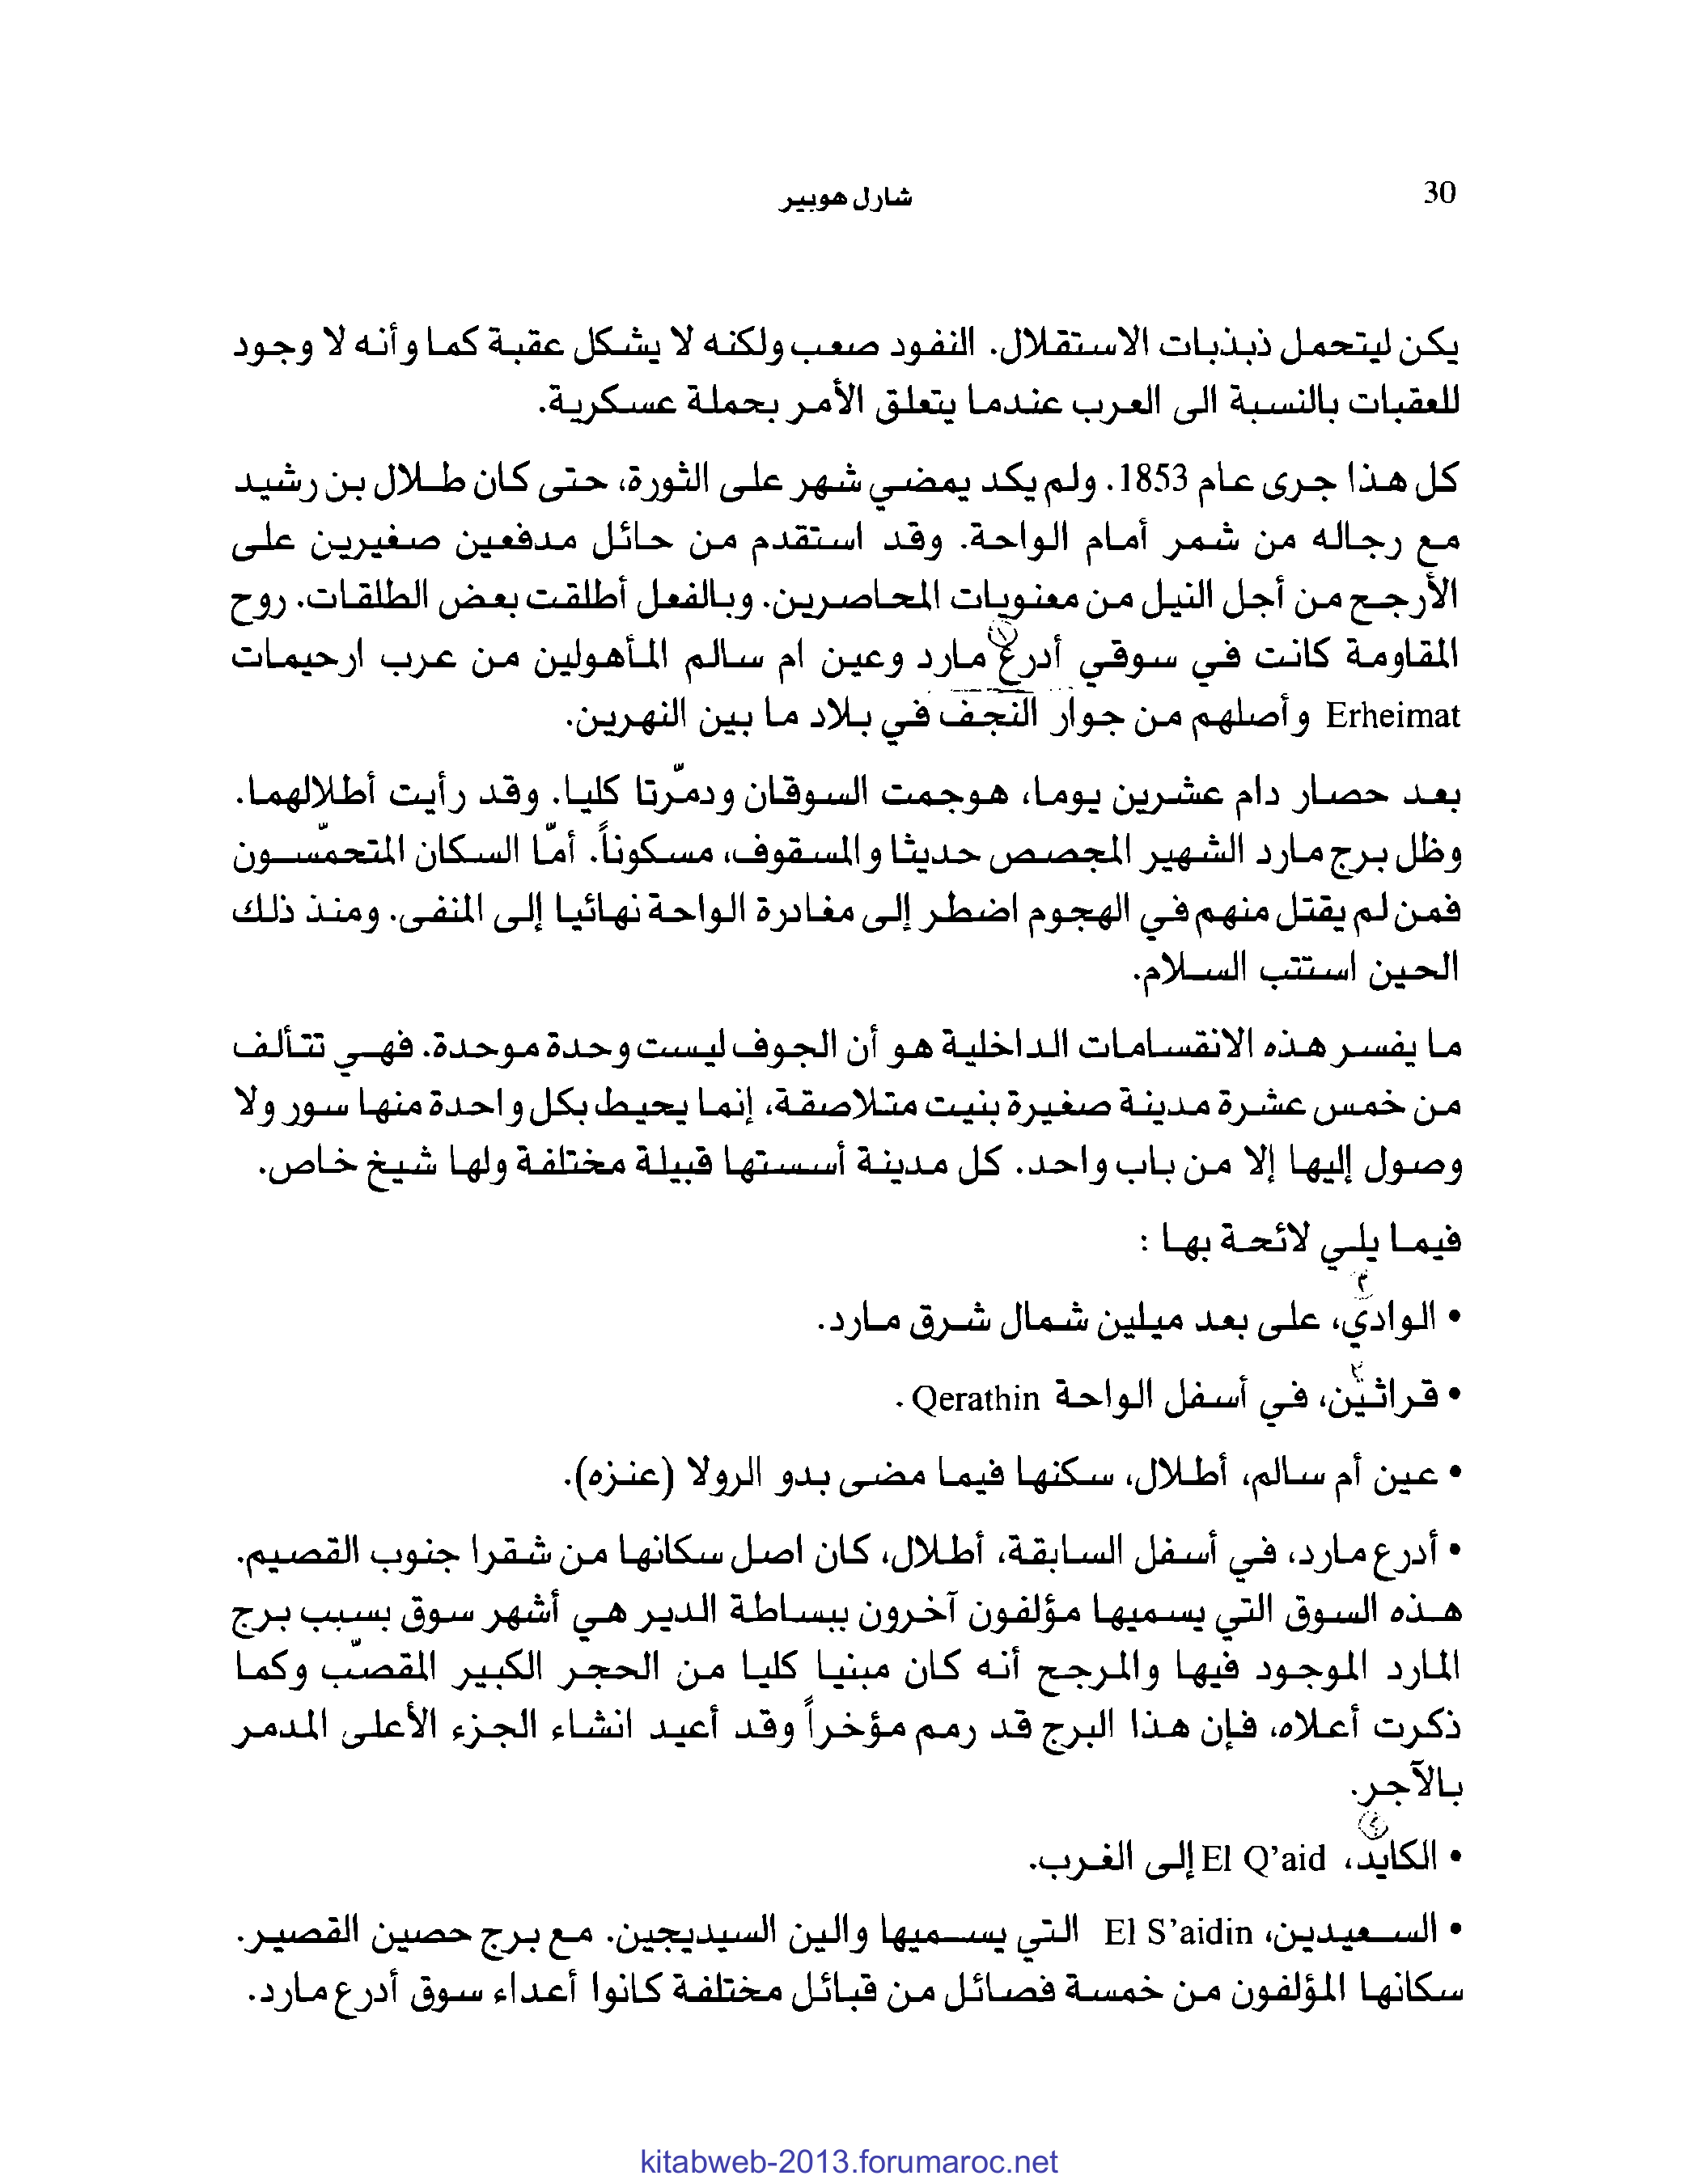 30
شارل هوبير
يكن ليتحمل ذبذبات الاستقلال. النفود صعب ولكنه لا يشكل عقبة كما وأنه لا وجود
للعقبات بالنسبة الى العرب عندما يتعلق الأمر بحملة عسكرية.
كل هذا جرى عام 1853. ولم يكد يمضي شهر على الثورة، حتى كان طلال بن رشيد
مع رجاله من شمر أمام الواحة. وقد استقدم من حائل مدفعين صغيرين على
الأرجح من أجل النيل من معنويات المحاصرين. وبالفعل أطلقت بعض الطلقات. روح
المقاومة كانت في سوقي أدرع مارد وعين ام سالم المأهولين من عرب ارحيمات
Erheimat وأصلهم من جوار النجف في بلاد ما بين النهرين.
بعد حصار دام عشرين يوما، هوجمت السوقان ودمّرتا كليا. وقد رأيت أطلالهما.
وظل برج مارد الشهير المجصص حديثا والمسقوف، مسكوناً. أمّا السكان المتحمّسون
فمن لم يقتل منهم في الهجوم اضطر إلى مغادرة الواحة نهائيا إلى المنفى. ومنذ ذلك
الحين استتب السلام.
ما يفسر هذه الانقسامات الداخلية هو أن الجوف ليست وحدة موحدة. فهي تتألف
من خمس عشرة مدينة صغيرة بنيت متلاصقة، إنما يحيط بكل واحدة منها سور ولا
وصول إليها إلا من باب واحد. كل مدينة أسستها قبيلة مختلفة ولها شيخ خاص.
فيما يلي لائحة بها :
• الوادي، على بعد ميلين شمال شرق مارد.
• قراثين، في أسفل الواحة Qerathin .
• عين أم سالم، أطلال، سكنها فيما مضى بدو الرولا (عنزه).
• أدرع مارد، في أسفل السابقة، أطلال، كان اصل سكانها من شقرا جنوب القصيم.
هذه السوق التي يسميها مؤلفون آخرون ببساطة الدير هي أشهر سوق بسبب برج
المارد الموجود فيها والمرجح أنه كان مبنيا كليا من الحجر الكبير المقصّب وكما
ذكرت أعلاه، فإن هذا البرج قد رمم مؤخراً وقد أعيد انشاء الجزء الأعلى المدمر
بالآجر.
• الكايد، El Q’aid إلى الغرب.
• السعيدين، El S’aidin التي يسميها والين السيديجين. مع برج حصين القصير.
سكانها المؤلفون من خمسة فصائل من قبائل مختلفة كانوا أعداء سوق أدرع مارد.
kitabweb-2013.forumaroc.net